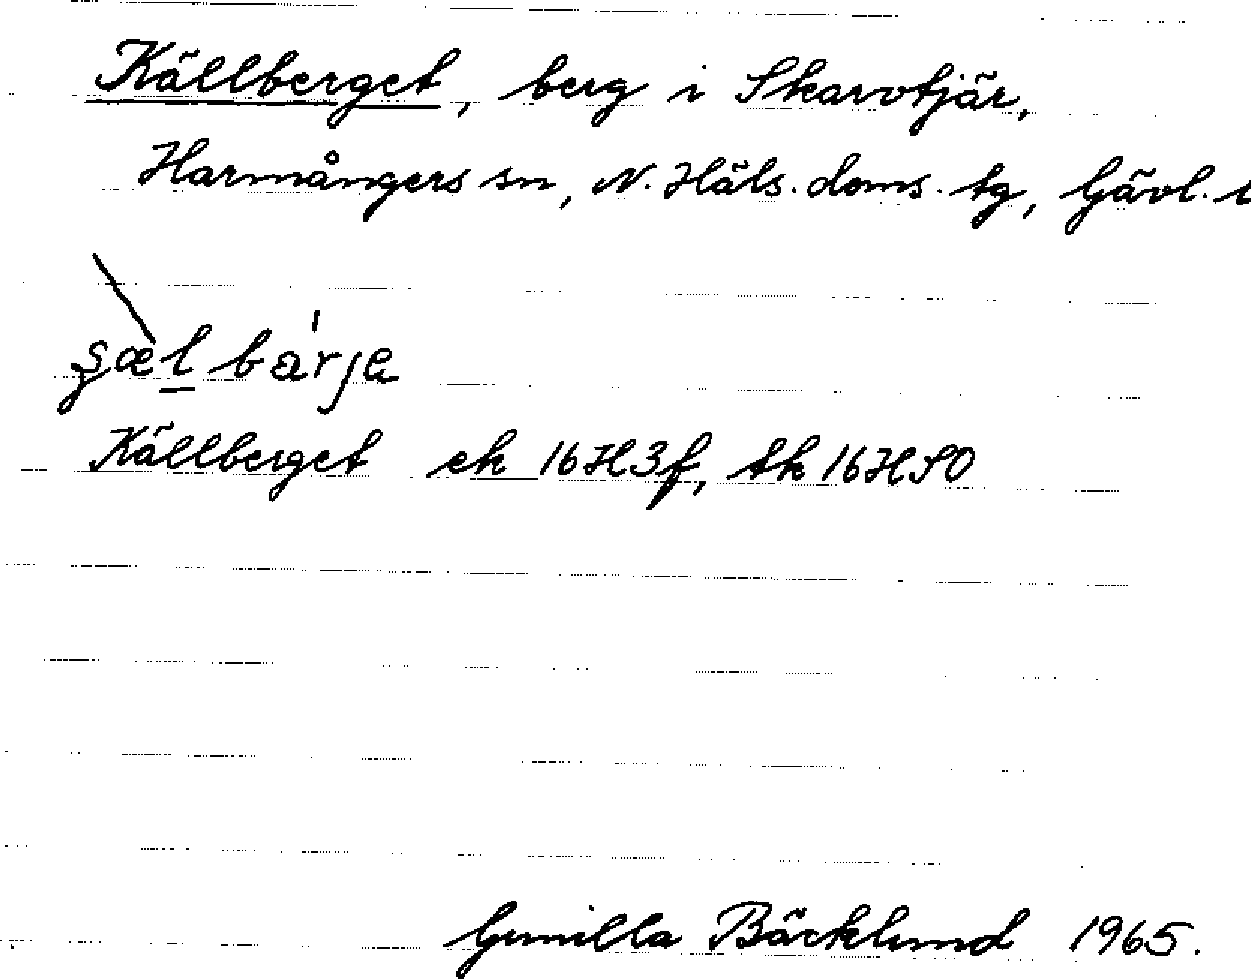 Källberget, berg i Skarvtjär,
Harmångers sn, N. Häls. doms. tg, Gävl.
Källberget ek 16H3f, tk 16HSO
Gunilla Bäcklund 1965.